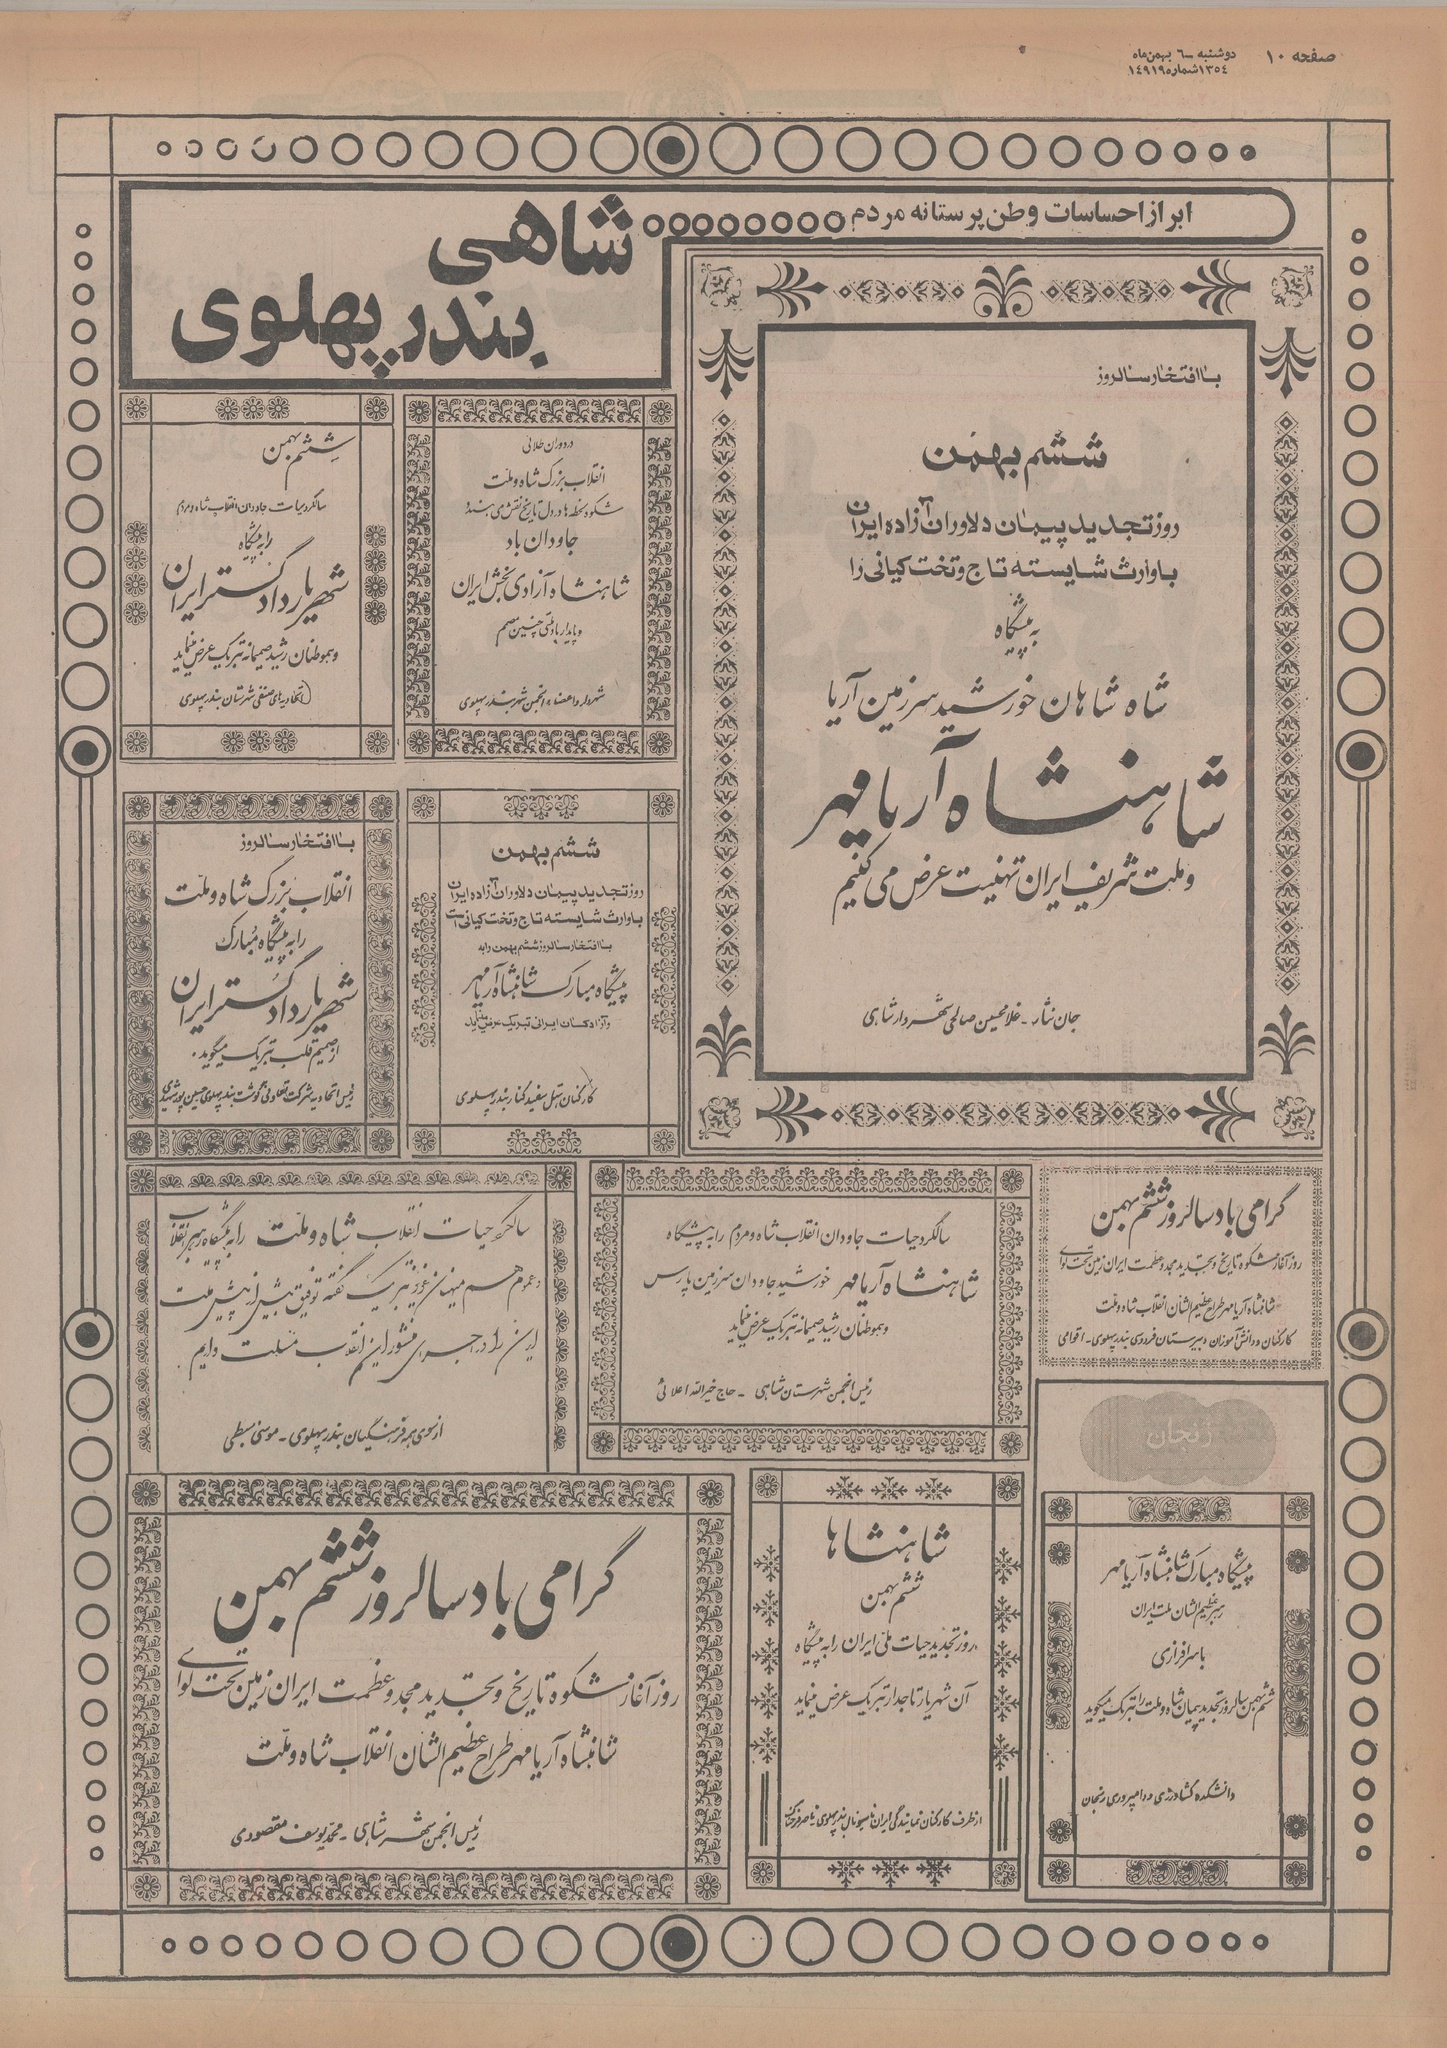 صفحه ۱۰
دوشنبه ــ ۶ بهمن ماه
۱۳۵۴ شماره ۱۴۹۱۹
ابراز احساسات وطن پرستانه مردم
شاهی
بندر پهلوی
با افتخار سالروز
ششم بهمن
روز تجدید پیمان دلاوران آزاده ایران
با وارث شایسته تاج و تخت کیانی را
به پیشگاه
شاه شاهان خورشید سرزمین آریا
شاهنشاه آریامهر
و ملت شریف ایران تهنیت عرض می کنیم
جان نثار - غلامحسین صالحی شهردار شاهی
در دوران طلائی
انقلاب بزرگ شاه و ملت
شکوه لحظه ها در دل تاریخ نقش می بندد
جاودان باد
شاهنشاه آزادی بخش ایران
و پایدار باد ملتی چنین مصمم
شهردار و اعضاء انجمن شهر بندر پهلوی
ششم بهمن
سالگرد حیات جاودان انقلاب شاه و مردم
را به پیشگاه
شهریار دادگستر ایران
و هموطنان رشید صمیمانه تبریک عرض مینماید
اتحادیه های صنفی شهرستان بندر پهلوی
ششم بهمن
روز تجدید پیمان دلاوران آزاده ایران
با وارث شایسته تاج و تخت کیانی است
با افتخار سالروز ششم بهمن را به
پیشگاه مبارک شاهنشاه آریامهر
و آزادگان ایرانی تبریک عرض مینماید
کارکنان هتل سفید کنار بندر پهلوی
با افتخار سالروز
انقلاب بزرگ شاه و ملت
را به پیشگاه مبارک
شهریار دادگستر ایران
از صمیم قلب تبریک میگوید.
رئیس اتحادیه شرکت تعاونی گوشت بندر پهلوی حسین پور شهیدی
گرامی باد سالروز ششم بهمن
روز آغاز شکوه تاریخ و تجدید مجد و عظمت ایران زمین تحت لوای
شاهنشاه آریامهر طراح عظیم الشأن انقلاب شاه و ملت
کارکنان و دانش آموزان دبیرستان فردوسی بندر پهلوی - اقوامی
سالگرد حیات جاودان انقلاب شاه و مردم را به پیشگاه
شاهنشاه آریامهر خورشید جاودان سرزمین پارس
و هموطنان رشید صمیمانه تبریک عرض مینماید
رئیس انجمن شهرستان شاهی - حاج خیرالله اعلائی
سالگرد حیات انقلاب شاه و ملت را به پیشگاه رهبر انقلاب
و عموم هم میهنان عزیز تبریک گفته توفیق بیش از پیش ملت
ایران را در اجرای منشور این انقلاب مسئلت داریم.
از سوی همه فرهنگیان بندر پهلوی - موسی سبطی
زنجان
پیشگاه مبارک شاهنشاه آریامهر
رهبر عظیم الشأن ملت ایران
با سرافرازی
ششم بهمن سالروز تجدید پیمان شاه و ملت را تبریک میگوید
دانشکده کشاورزی و دامپروری زنجان
شاهنشاها
ششم بهمن
روز تجدید حیات ملی ایران را به پیشگاه
آن شهریار تاجدار تبریک عرض مینماید
از طرف کارکنان نمایندگی ایران ناسیونال بندر پهلوی ناصر
گرامی باد سالروز ششم بهمن
روز آغاز شکوه تاریخ و تجدید مجد و عظمت ایران زمین تحت لوای
شاهنشاه آریامهر طراح عظیم الشأن انقلاب شاه و ملت
رئیس انجمن شهر شاهی - محمد یوسف مقصودی